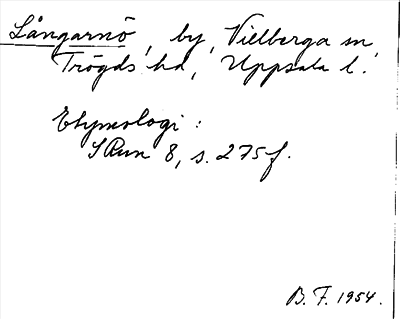 Långarnö, by, Villberga sn,
Trögds hd, Uppsala l.
Etymologi:
SRun 8, s. 275f.
B. F. 1954.